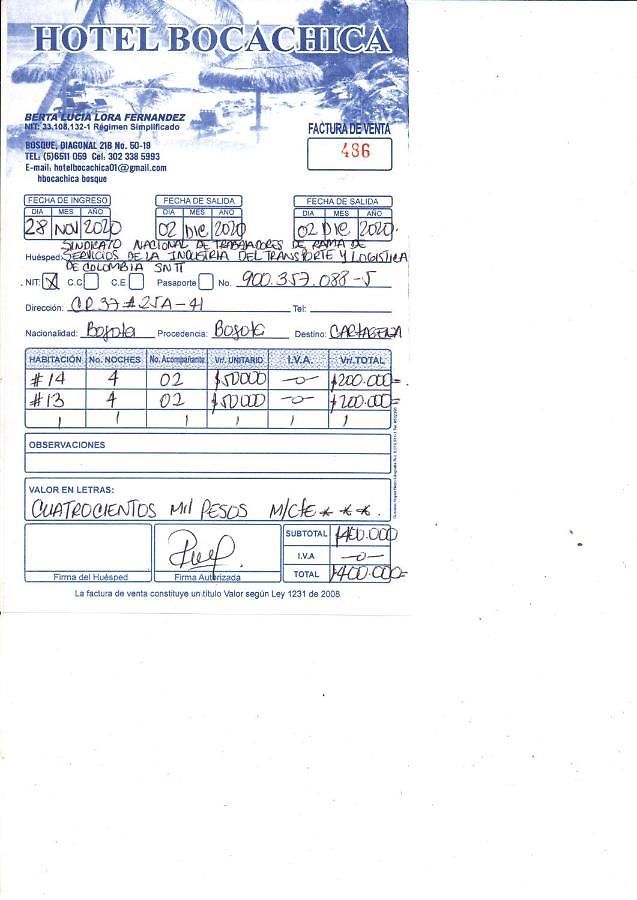 HOTEL BOCACHICA
BERTA LUCIA LORA FERNANDEZ
NIT: 33.108.132-1 Régimen Simplificado
BOSQUE, DIAGONAL 21B No. 50-19
TEL: (5)6511 059 Cel: 302 338 5993
E-mail: hotelbocachica01@gmail.com
hbocachica bosque
FACTURA DE VENTA
436
FECHA DE INGRESO FECHA DE SALIDA FECHA DE SALIDA
DIA MES AÑO DIA MES AÑO DIA MES AÑO
28 NOV 2020 02 Dic 2020 02 Dic 2020
SINDICATO NACIONAL DE TRABAJADORES DE RAMA DE
Huésped: SERVICIOS DE LA INDUSTRIA DEL TRANSPORTE Y LOGISTICA
DE COLOMBIA SNTT
NIT: X C.C C.E Pasaporte No. 900.357.088-5
Dirección: CR 37 #25A-41 Tel:
Nacionalidad: Bogota Procedencia: Bogota Destino: CARTAGENA
HABITACIÓN No. NOCHES No. Acompañante Vr/. UNITARIO I.V.A. Vr/.TOTAL
#14 4 02 $50000 -0- $200.000=
#13 4 02 $50000 -0- $200.000=
OBSERVACIONES
VALOR EN LETRAS:
CUATROCIENTOS Mil PESOS M/CTE * * * .
SUBTOTAL $400.000
I.V.A -0-
TOTAL $400.000=
Firma del Huésped Firma Autorizada
La factura de venta constituye un titulo Valor según Ley 1231 de 2008